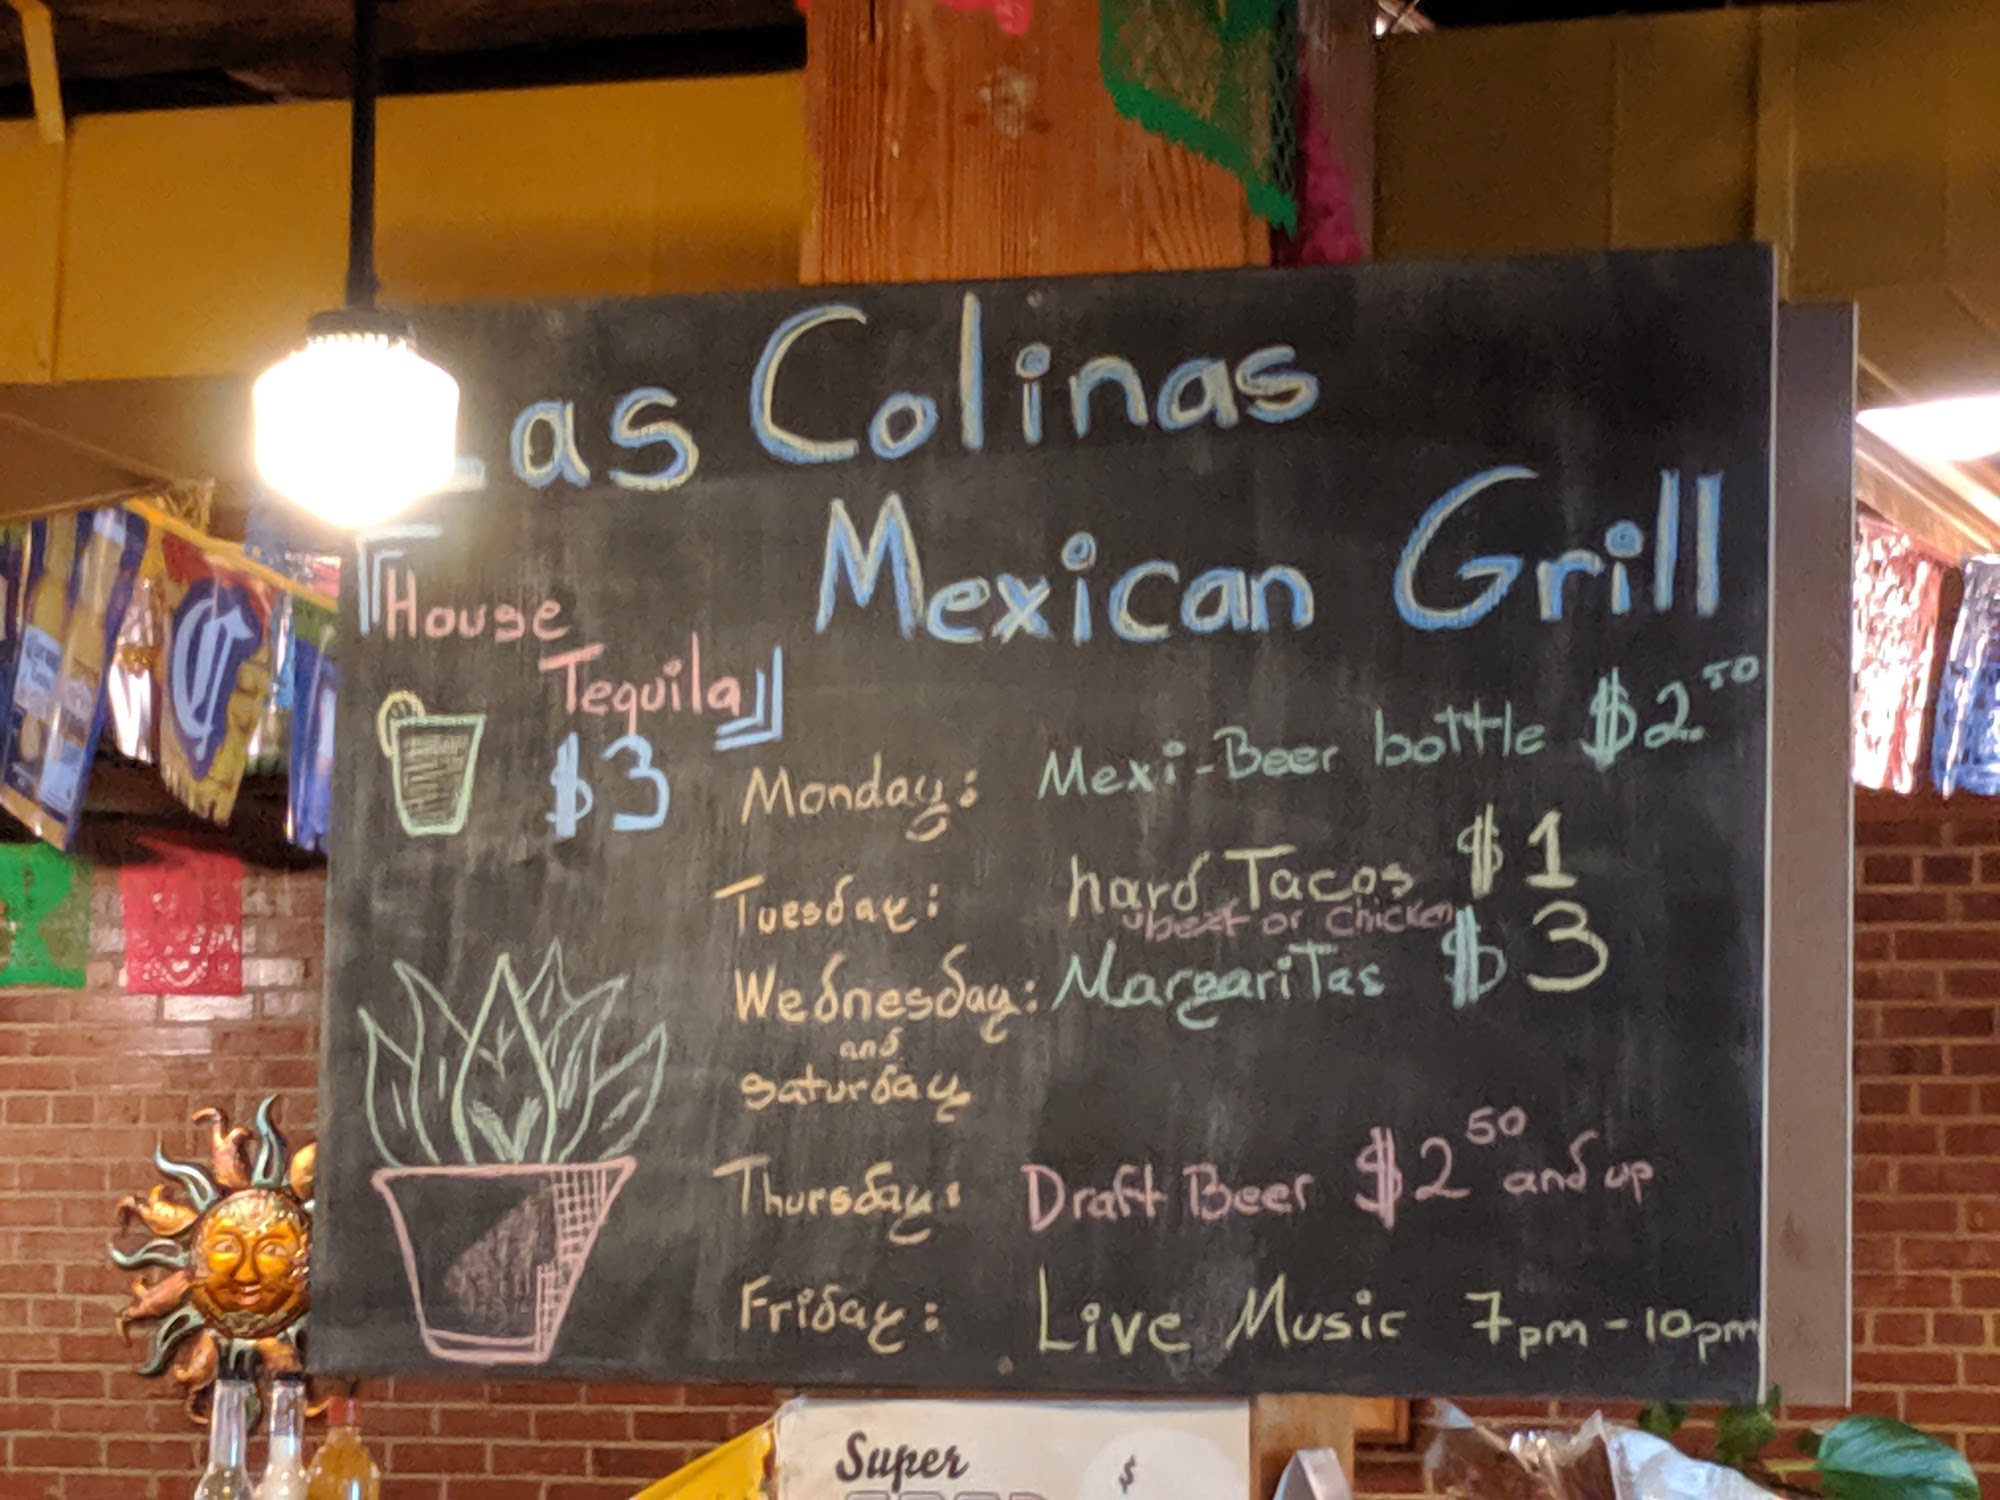 Las Colinas
Mexican Grill
House
Tequila
$3
Monday: Mexi-Beer bottle $2.50
Tuesday: hard Tacos $1
beef or chicken
Wednesday: Margaritas $3
and
saturday
Thursday: Draft Beer $2 50 and up
Friday: Live Music 7pm - 10pm
Super
$